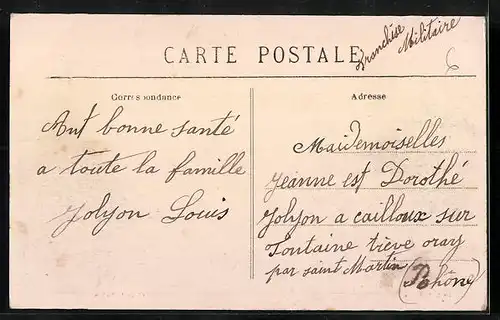 Franchise
Militaire
CARTE POSTALE
6
Correspondance
Adresse
Ant bonne santé
a toute la famille
Jolyon Louis
Maidemoiselles
Jeanne est Dorothé
Jolyon a cailloux sur
Fontaine tiève oray
par saint Martin (Rhône)